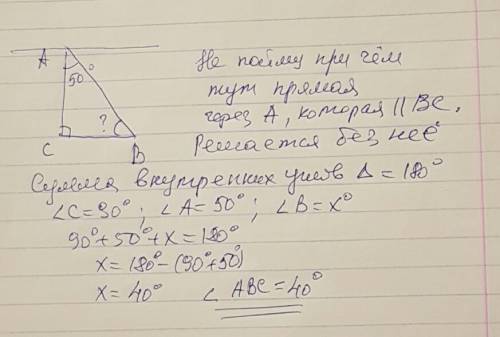 A
50°
?
C
B
Не пойму при чём
тут прямая
через А, которая || ВС.
Решается без неё
Сумма внутренних углов Δ = 180°
∠C=90° ; ∠A=50° ; ∠B=x°
90°+50°+x=180°
x=180°-(90°+50°)
x=40° ∠ABC=40°